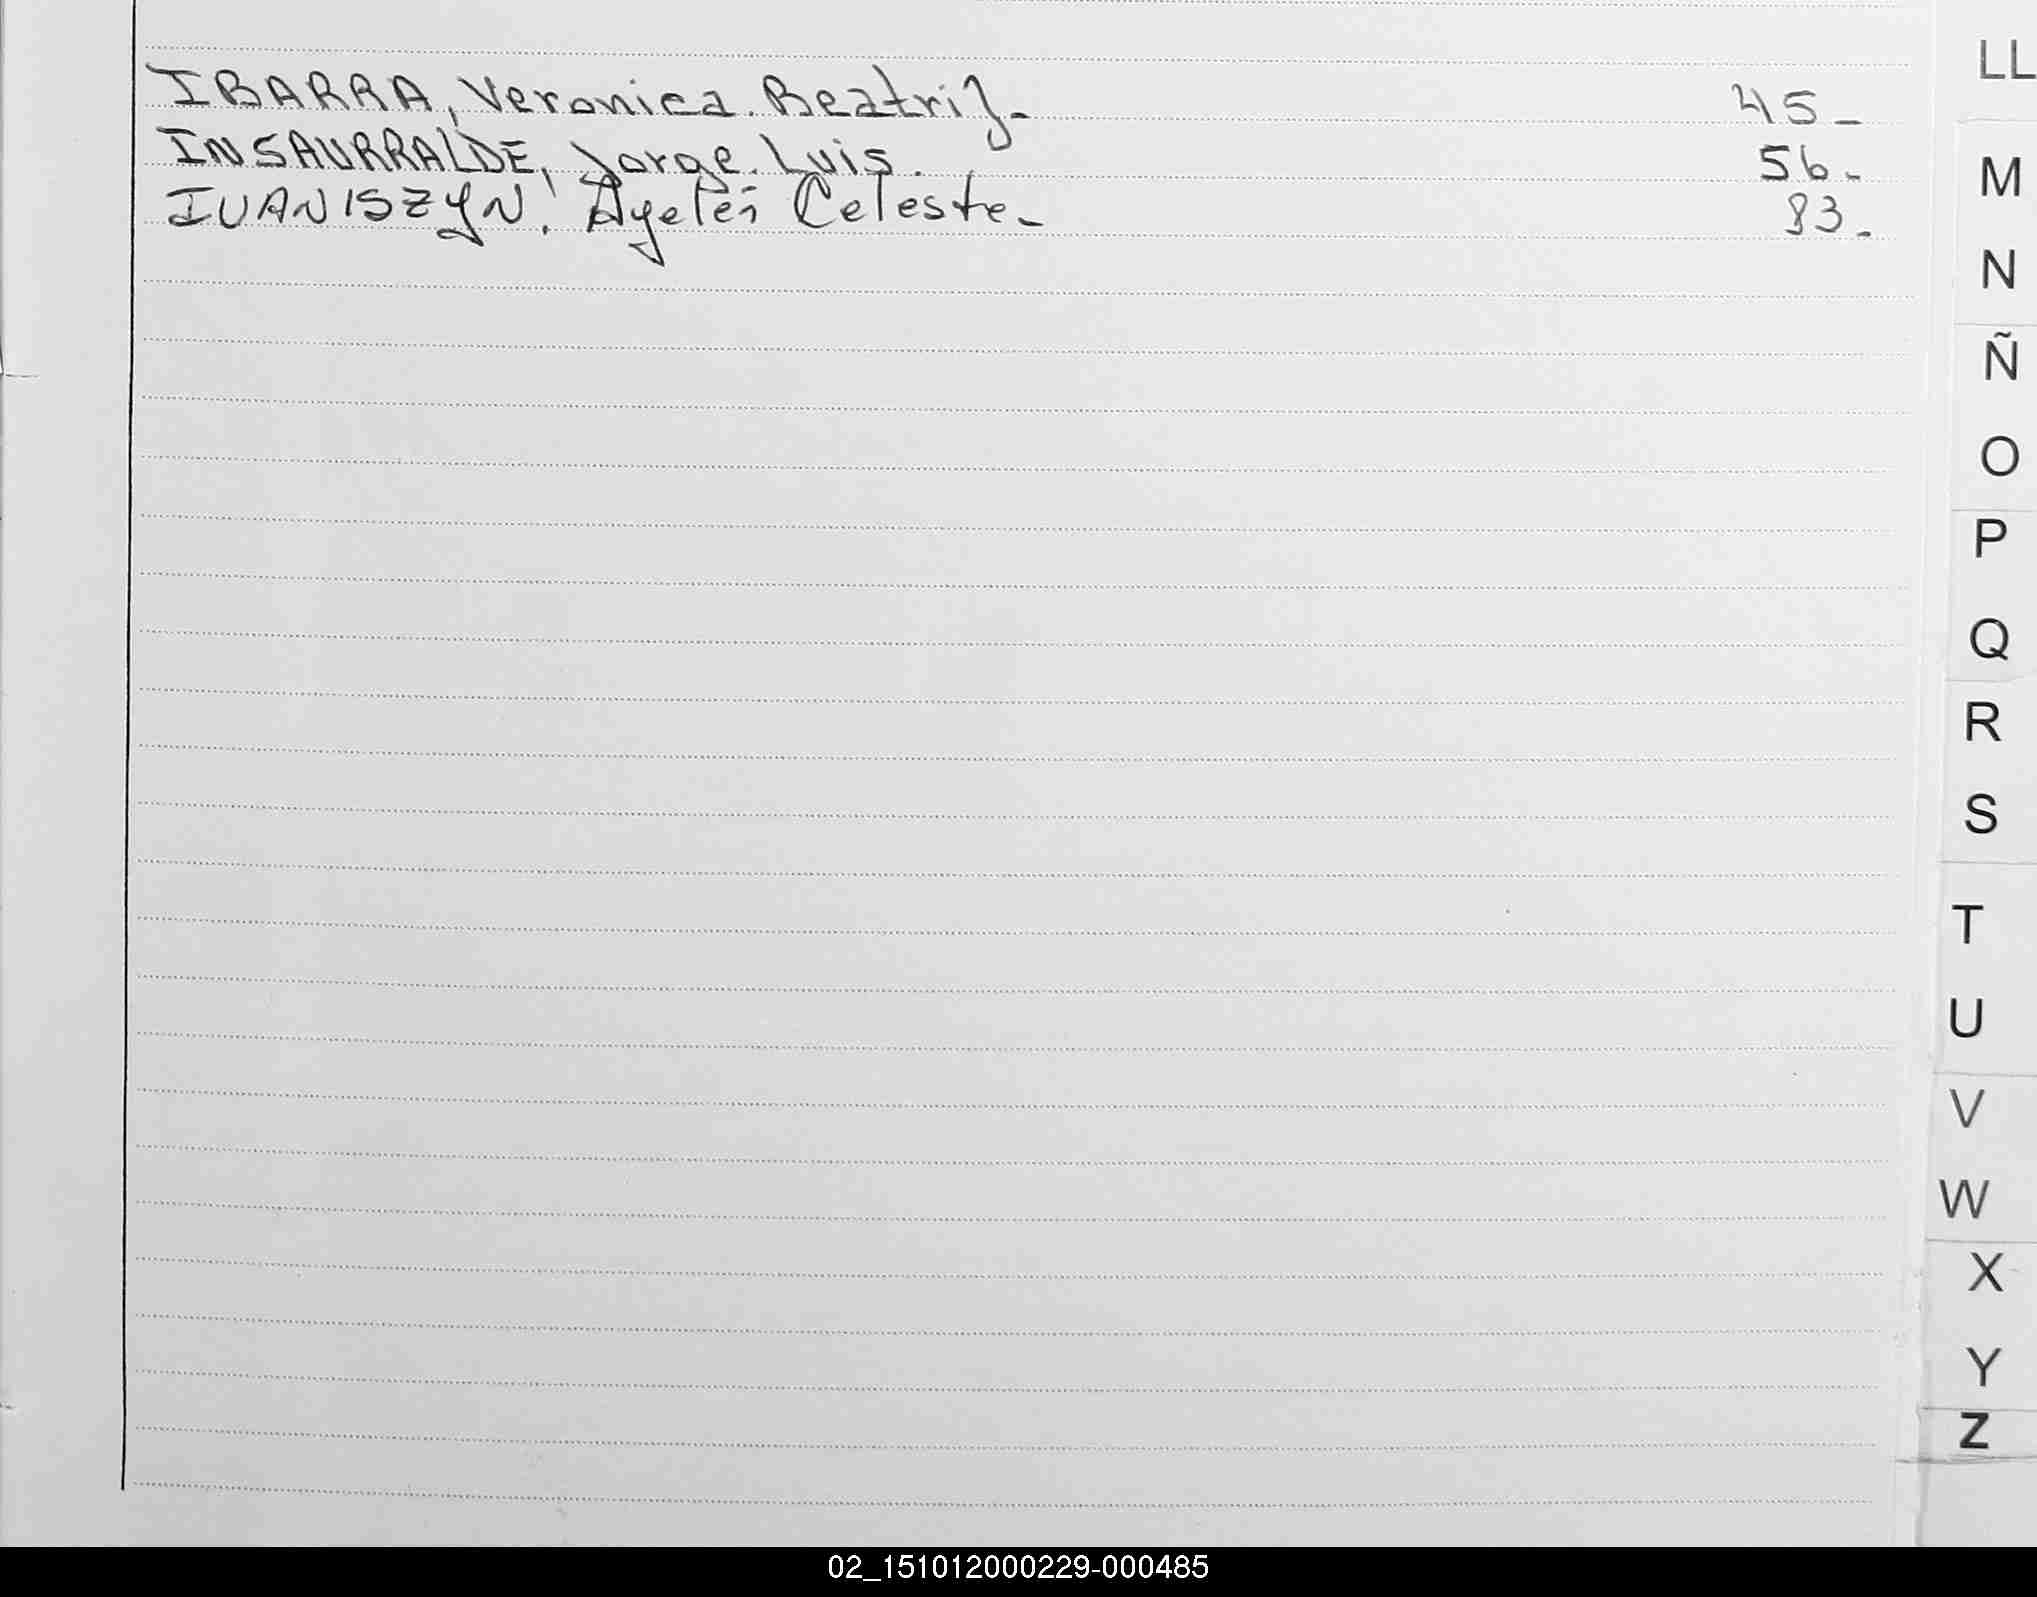 IBARRA, Veronica Beatriz- 45-
INSAURRALDE, Jorge Luis. 56-
IVANISZYN, Ayelén Celeste- 83-
LL
M
N
Ñ
O
P
Q
R
S
T
U
V
W
X
Y
Z
02_151012000229-000485